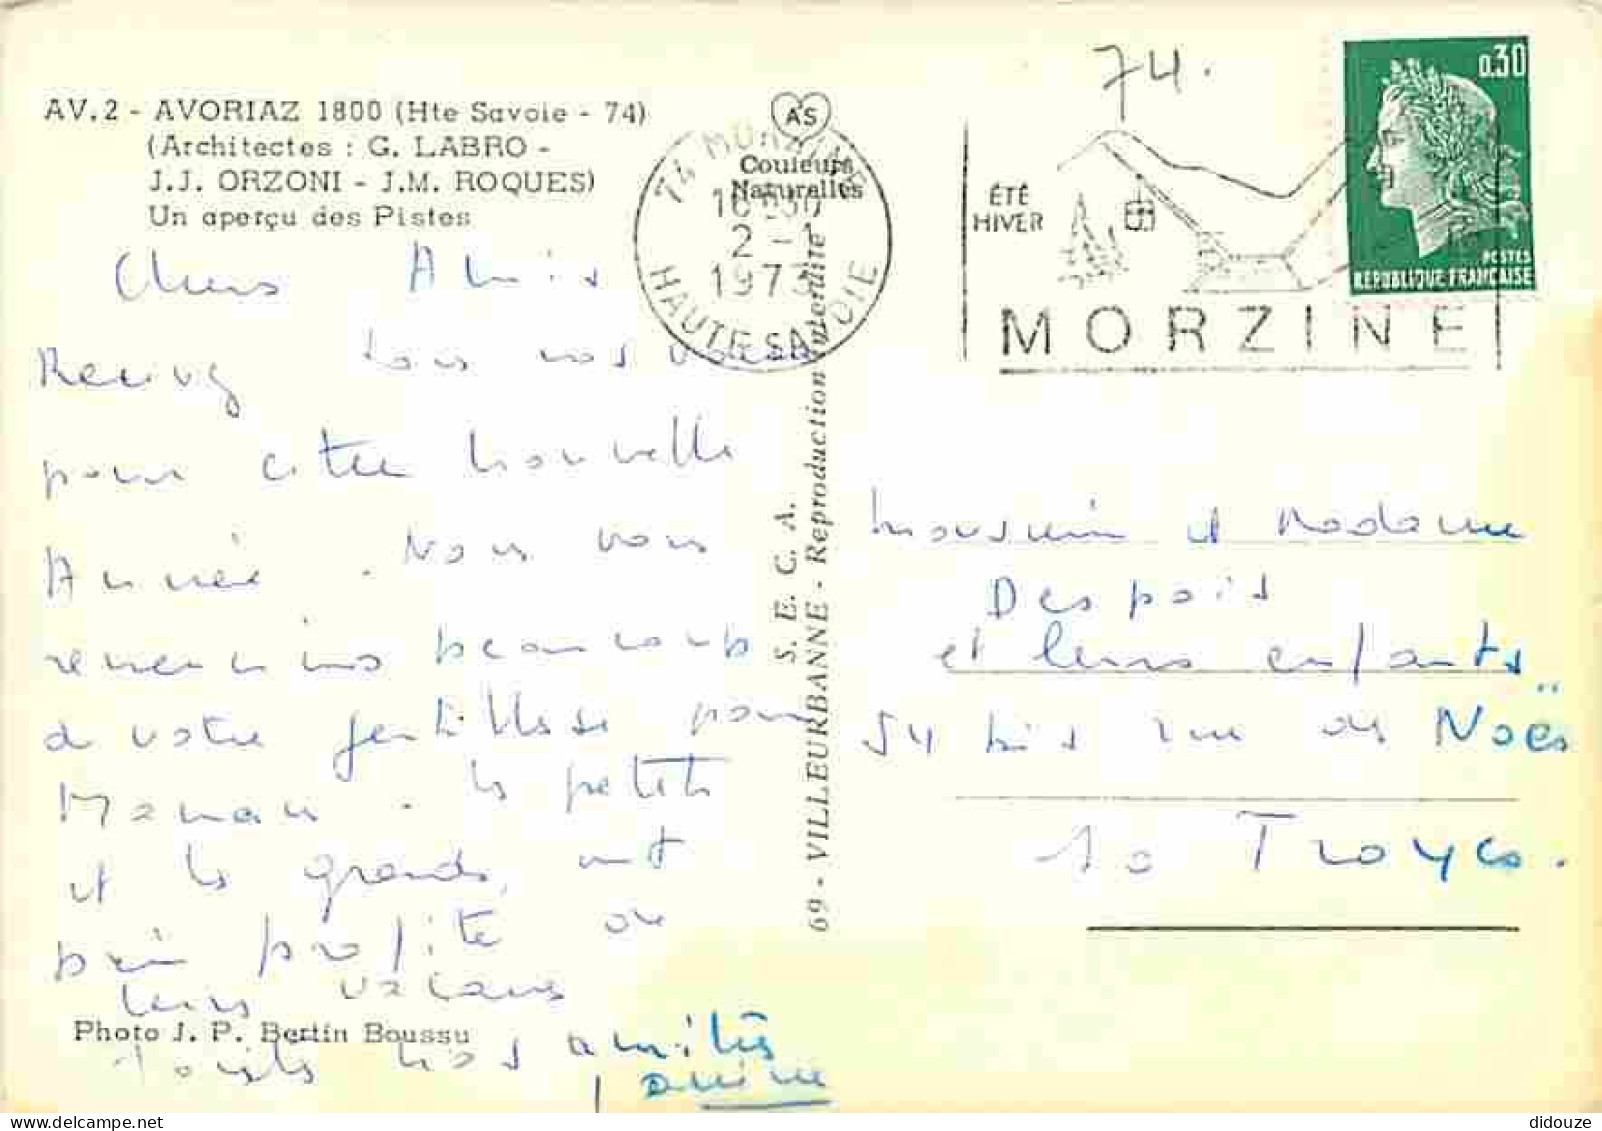 AV.2 - AVORIAZ 1800 (Hte Savoie - 74)
(Architectes : G. LABRO -
J.J. ORZONI - J.M. ROQUES)
Un aperçu des Pistes
Chers Amis
Recevez tous nos voeux
pour cette nouvelle
Année. Nous vous
remercions beaucoup
de votre gentillesse pour
Maman. Les petits
et les grands, ont
bien profité de
leurs vacances
Photo J. P. Bertin Boussu
Toutes nos amitiés
AS
Couleurs
Naturelles
74 MORZINE
2 - 1
1973
HAUTE-SAVOIE
S. E. C. A.
69 - VILLEURBANNE - Reproduction interdite
74.
ÉTÉ
HIVER
MORZINE
0,30
POSTES
REPUBLIQUE FRANÇAISE
Monsieur et Madame
Despois
et leurs enfants
54 bis rue des Noës
10 Troyes.
didouze